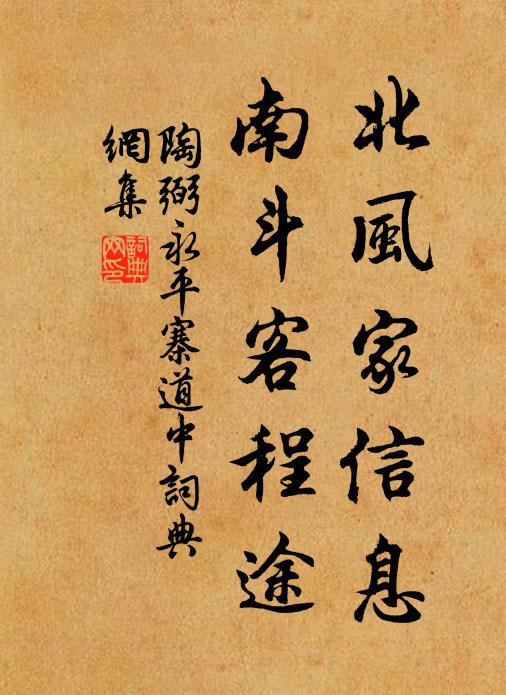 北風家信息
南斗客程途
陶弼永平寨道中詞典
網集
詞典網印